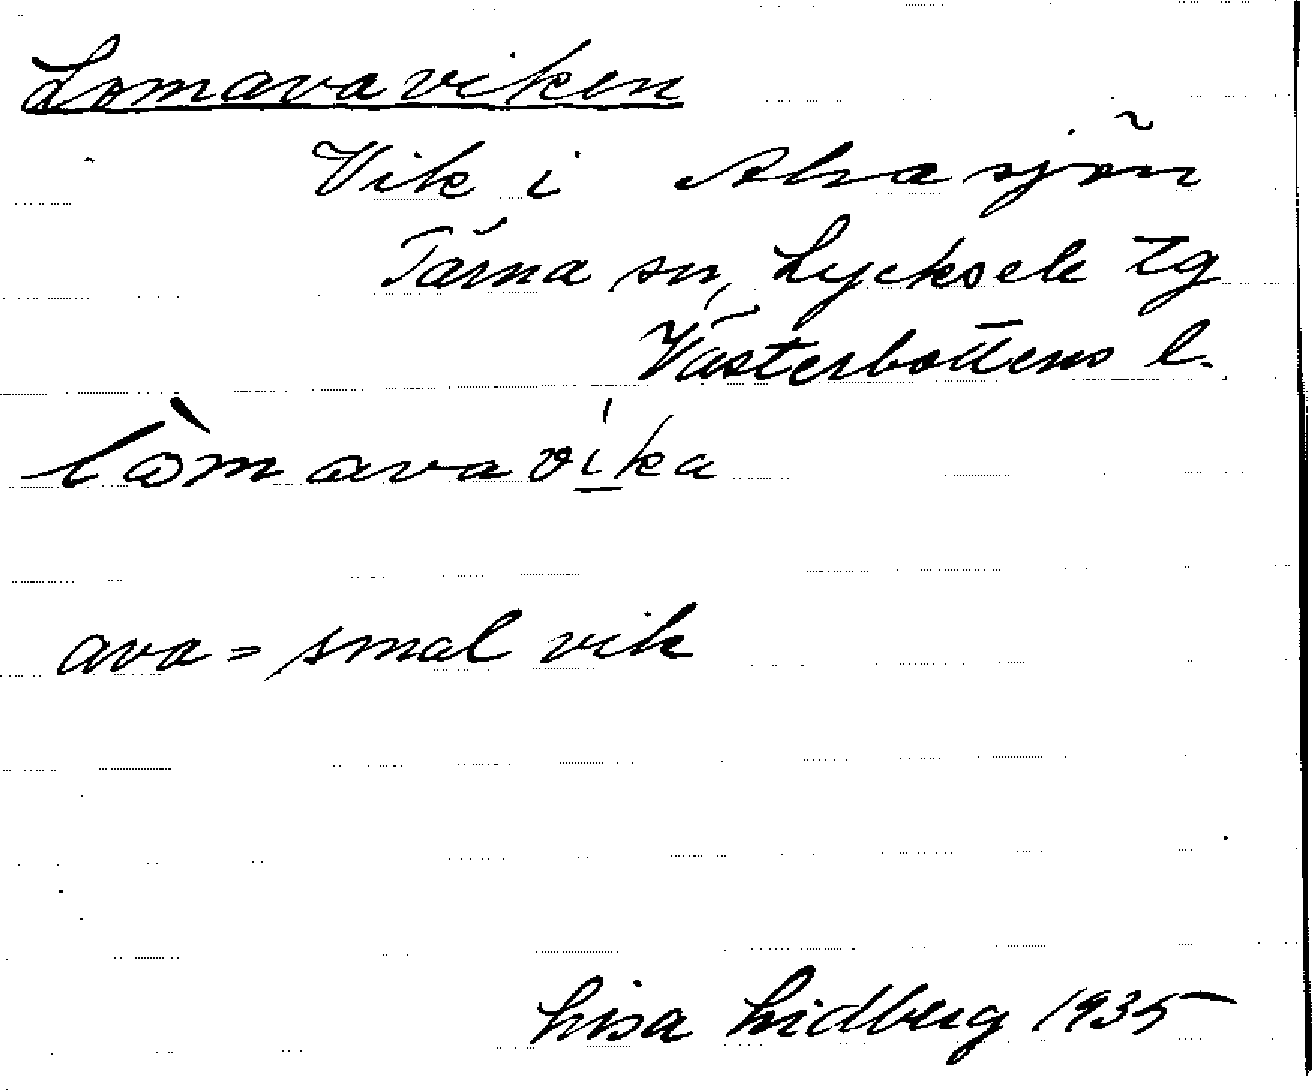 Lomavaviken
Vik i Ahasjön
Tärna sn, Lycksele tg
Västerbottens l.
lòmavavi̲ka
ava = smal vik
Lisa Lidberg 1935